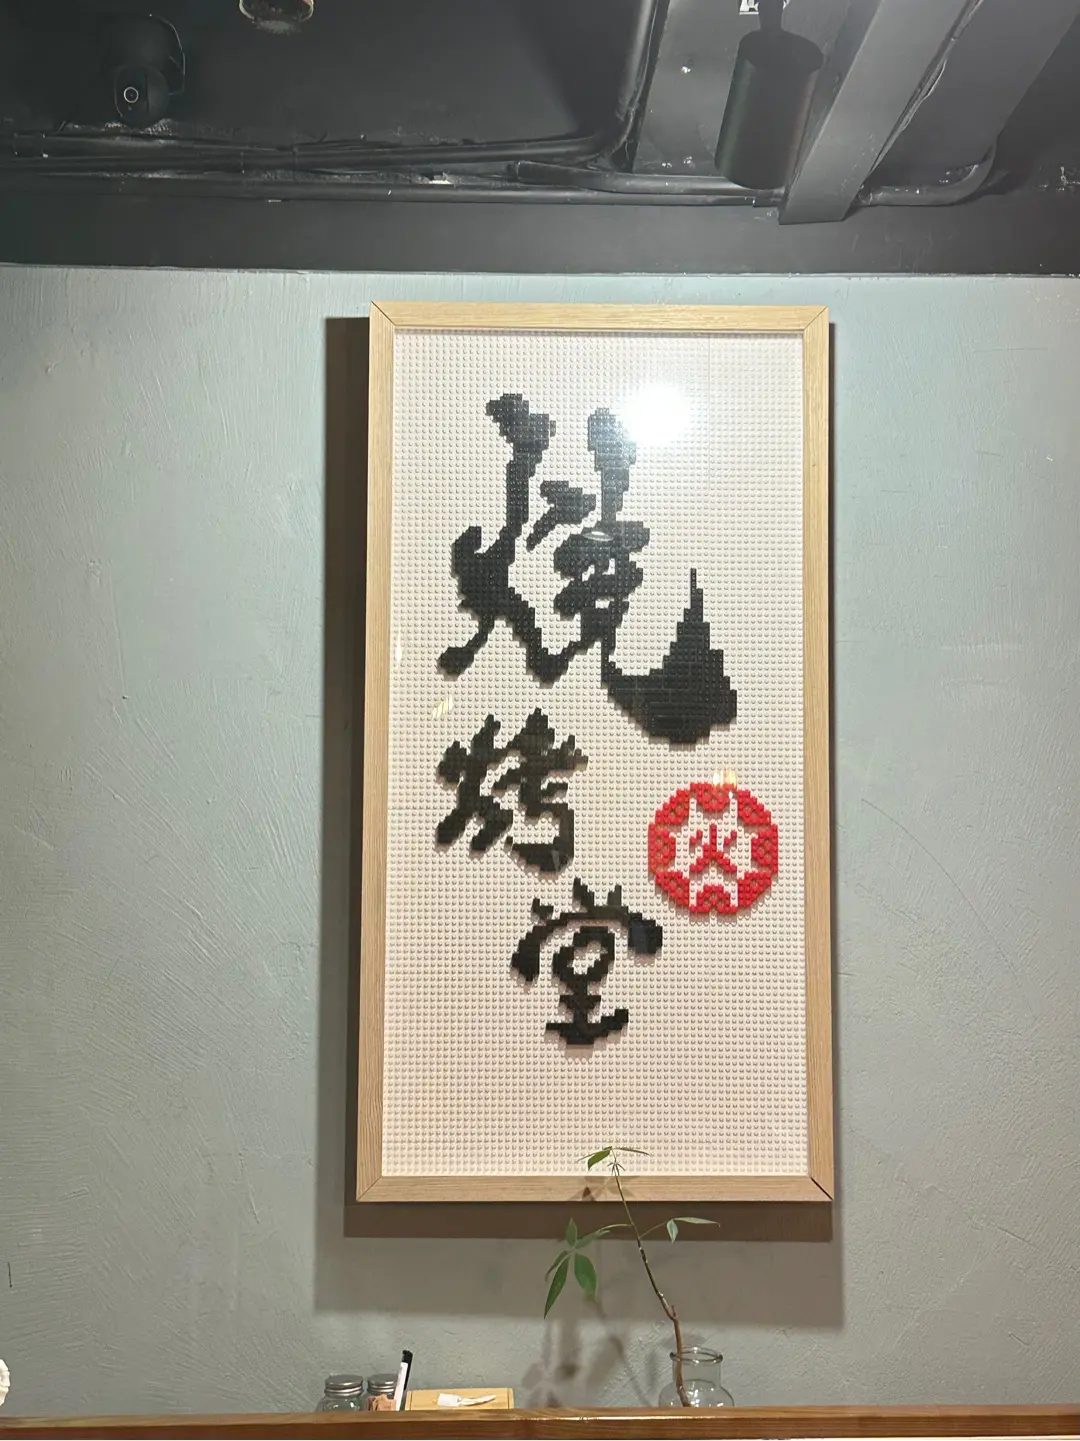 燒
烤
堂
火